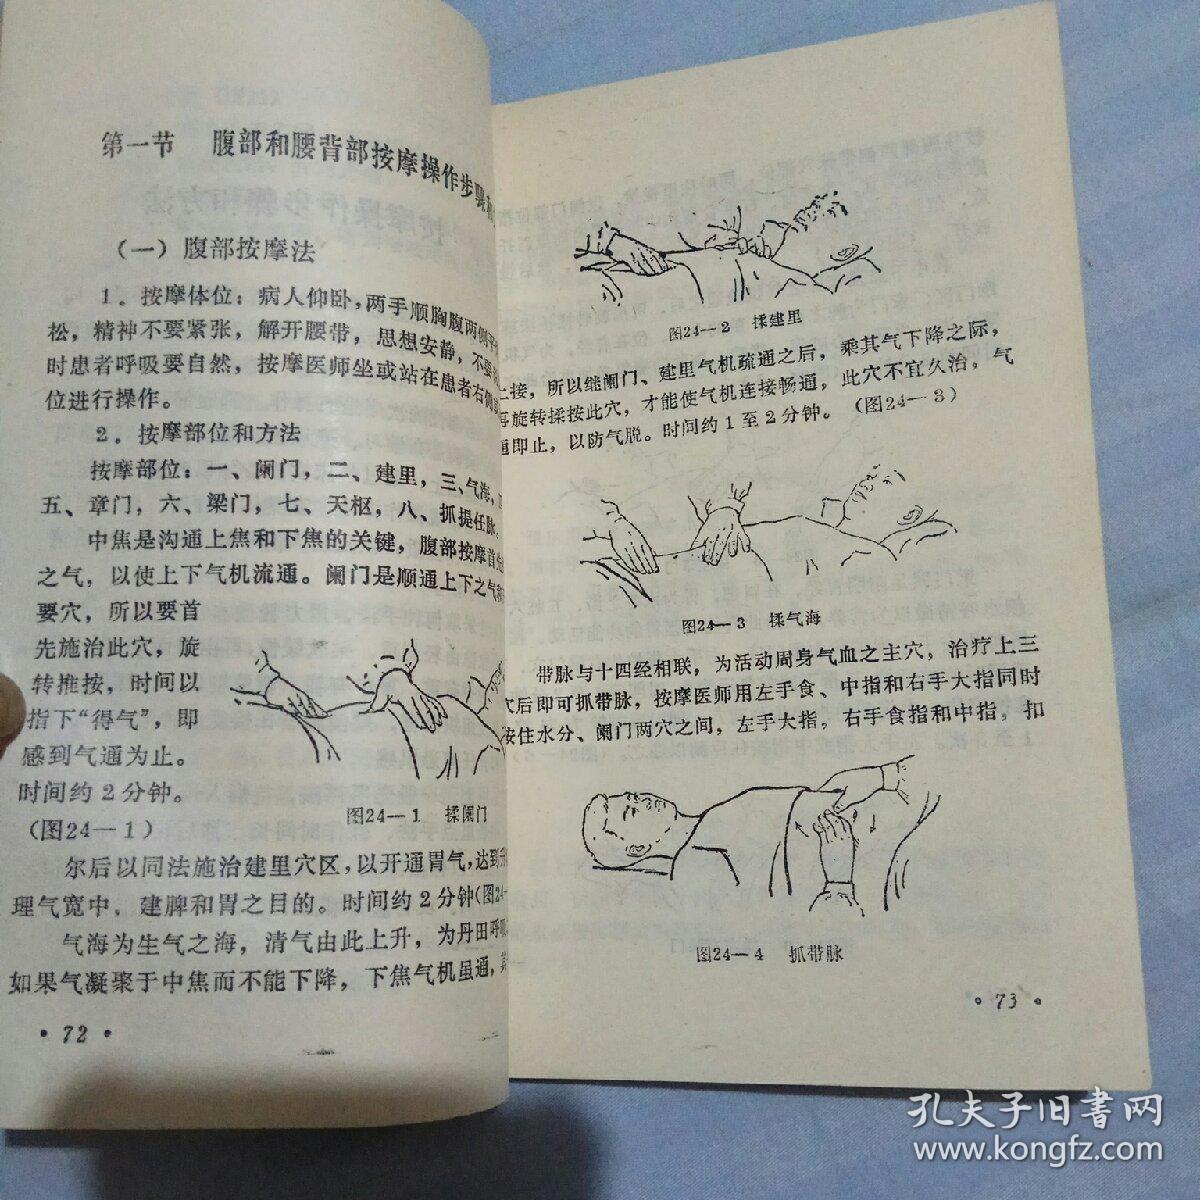 第一节 腹部和腰背部按摩操作步骤
（一）腹部按摩法
1．按摩体位：病人仰卧，两手顺胸腹两侧平
松，精神不要紧张，解开腰带，思想安静，不要
时患者呼吸要自然，按摩医师坐或站在患者右侧
位进行操作。
2．按摩部位和方法
按摩部位：一、阑门，二、建里，三、气海，
五、章门，六、梁门，七、天枢，八、抓提任脉。
中焦是沟通上焦和下焦的关键，腹部按摩首先
之气，以使上下气机流通。阑门是顺通上下之气
要穴，所以要首
先施治此穴，旋
转推按，时间以
指下“得气”，即
感到气通为止。
时间约2分钟。
（图24—1）
图24—1 揉阑门
尔后以同法施治建里穴区，以开通胃气，达到升
理气宽中，建脾和胃之目的。时间约2分钟（图24-
气海为生气之海，清气由此上升，为丹田呼吸
如果气凝聚于中焦而不能下降，下焦气机虽通，
• 72 •
图24—2 揉建里
上接，所以继阑门、建里气机疏通之后，乘其气下降之际，
再旋转揉按此穴，才能使气机连接畅通，此穴不宜久治，气
通即止，以防气脱。时间约1至2分钟。（图24—3）
图24—3 揉气海
带脉与十四经相联，为活动周身气血之主穴，治疗上三
穴后即可抓带脉，按摩医师用左手食、中指和右手大指同时
按住水分、阑门两穴之间，左手大指，右手食指和中指，扣
图24—4 抓带脉
• 73 •
孔夫子旧书网
www.kongfz.com